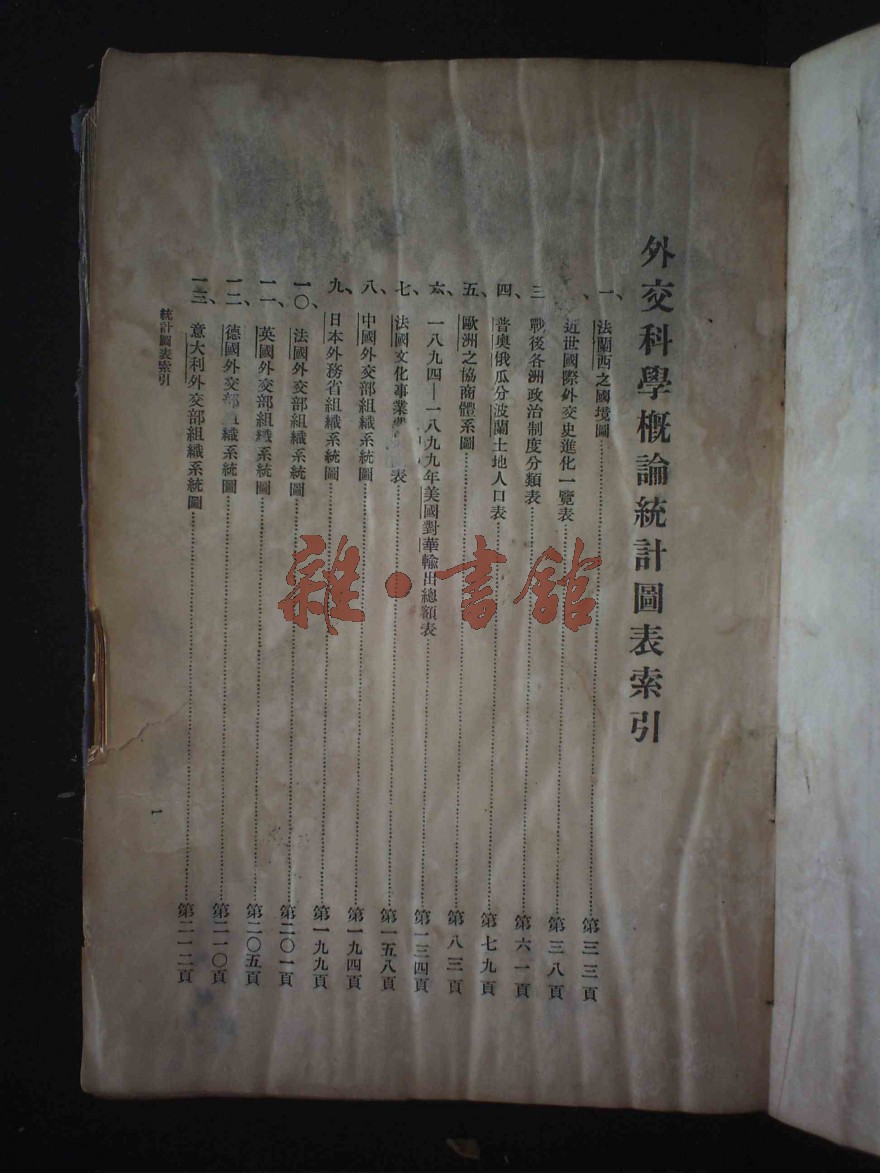 外交科學概論統計圖表索引
一、法蘭西之國境圖……第三三頁
、近世國際外交史進化一覽表……第三八頁
三、戰後各洲政治制度分類表……第六一頁
四、普奧俄瓜分波蘭土地人口表……第七九頁
五、歐洲之協商體系圖……第八三頁
六、一八九四—一八九九年美國對華輸出總額表……第一三四頁
七、法國文化事業 表……第一五八頁
八、中國外交部組織系統圖……第一九四頁
九、日本外務省組織系統圖……第一九九頁
一〇、法國外交部組織系統圖……第二〇一頁
一一、英國外交部組織系統圖……第二〇五頁
一二、德國外交部組織系統圖……第二一〇頁
一三、意大利外交部組織系統圖……第二一二頁
統計圖表索引
一
雜·書館